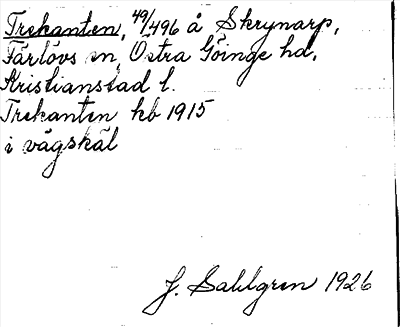 Trekanten, 49/496 å Skrynarp,
Färlövs sn, Östra Göinge hd,
Kristianstad l.
Trekanten hb 1915
i vägskäl
J. Sahlgren 1926